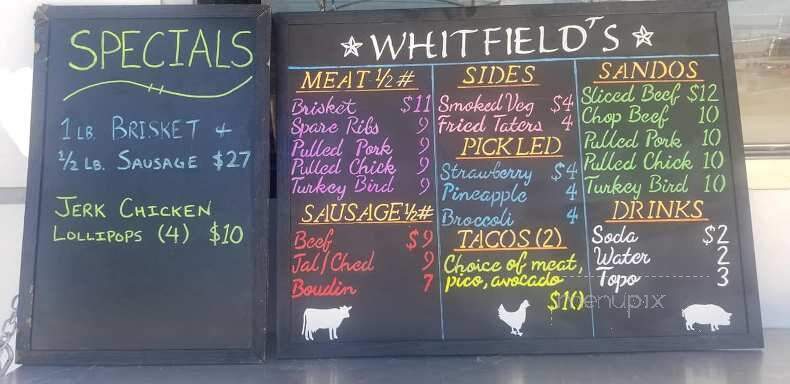 SPECIALS
1 LB. BRISKET +
1/2 LB. SAUSAGE $27
JERK CHICKEN
LOLLIPOPS (4) $10
WHITFIELD'S
MEAT 1/2#
Brisket $11
Spare Ribs 9
Pulled Pork 9
Pulled Chick 9
Turkey Bird 9
SAUSAGE 1/2#
Beef $9
Jal/Ched 9
Boudin 7
SIDES
Smoked Veg $4
Fried Taters 4
PICKLED
Strawberry $4
Pineapple 4
Broccoli 4
TACOS (2)
Choice of meat,
pico, avocado
$10
SANDOS
Sliced Beef $12
Chop Beef 10
Pulled Pork 10
Pulled Chick 10
Turkey Bird 10
DRINKS
Soda $2
Water 2
Topo 3
menupix